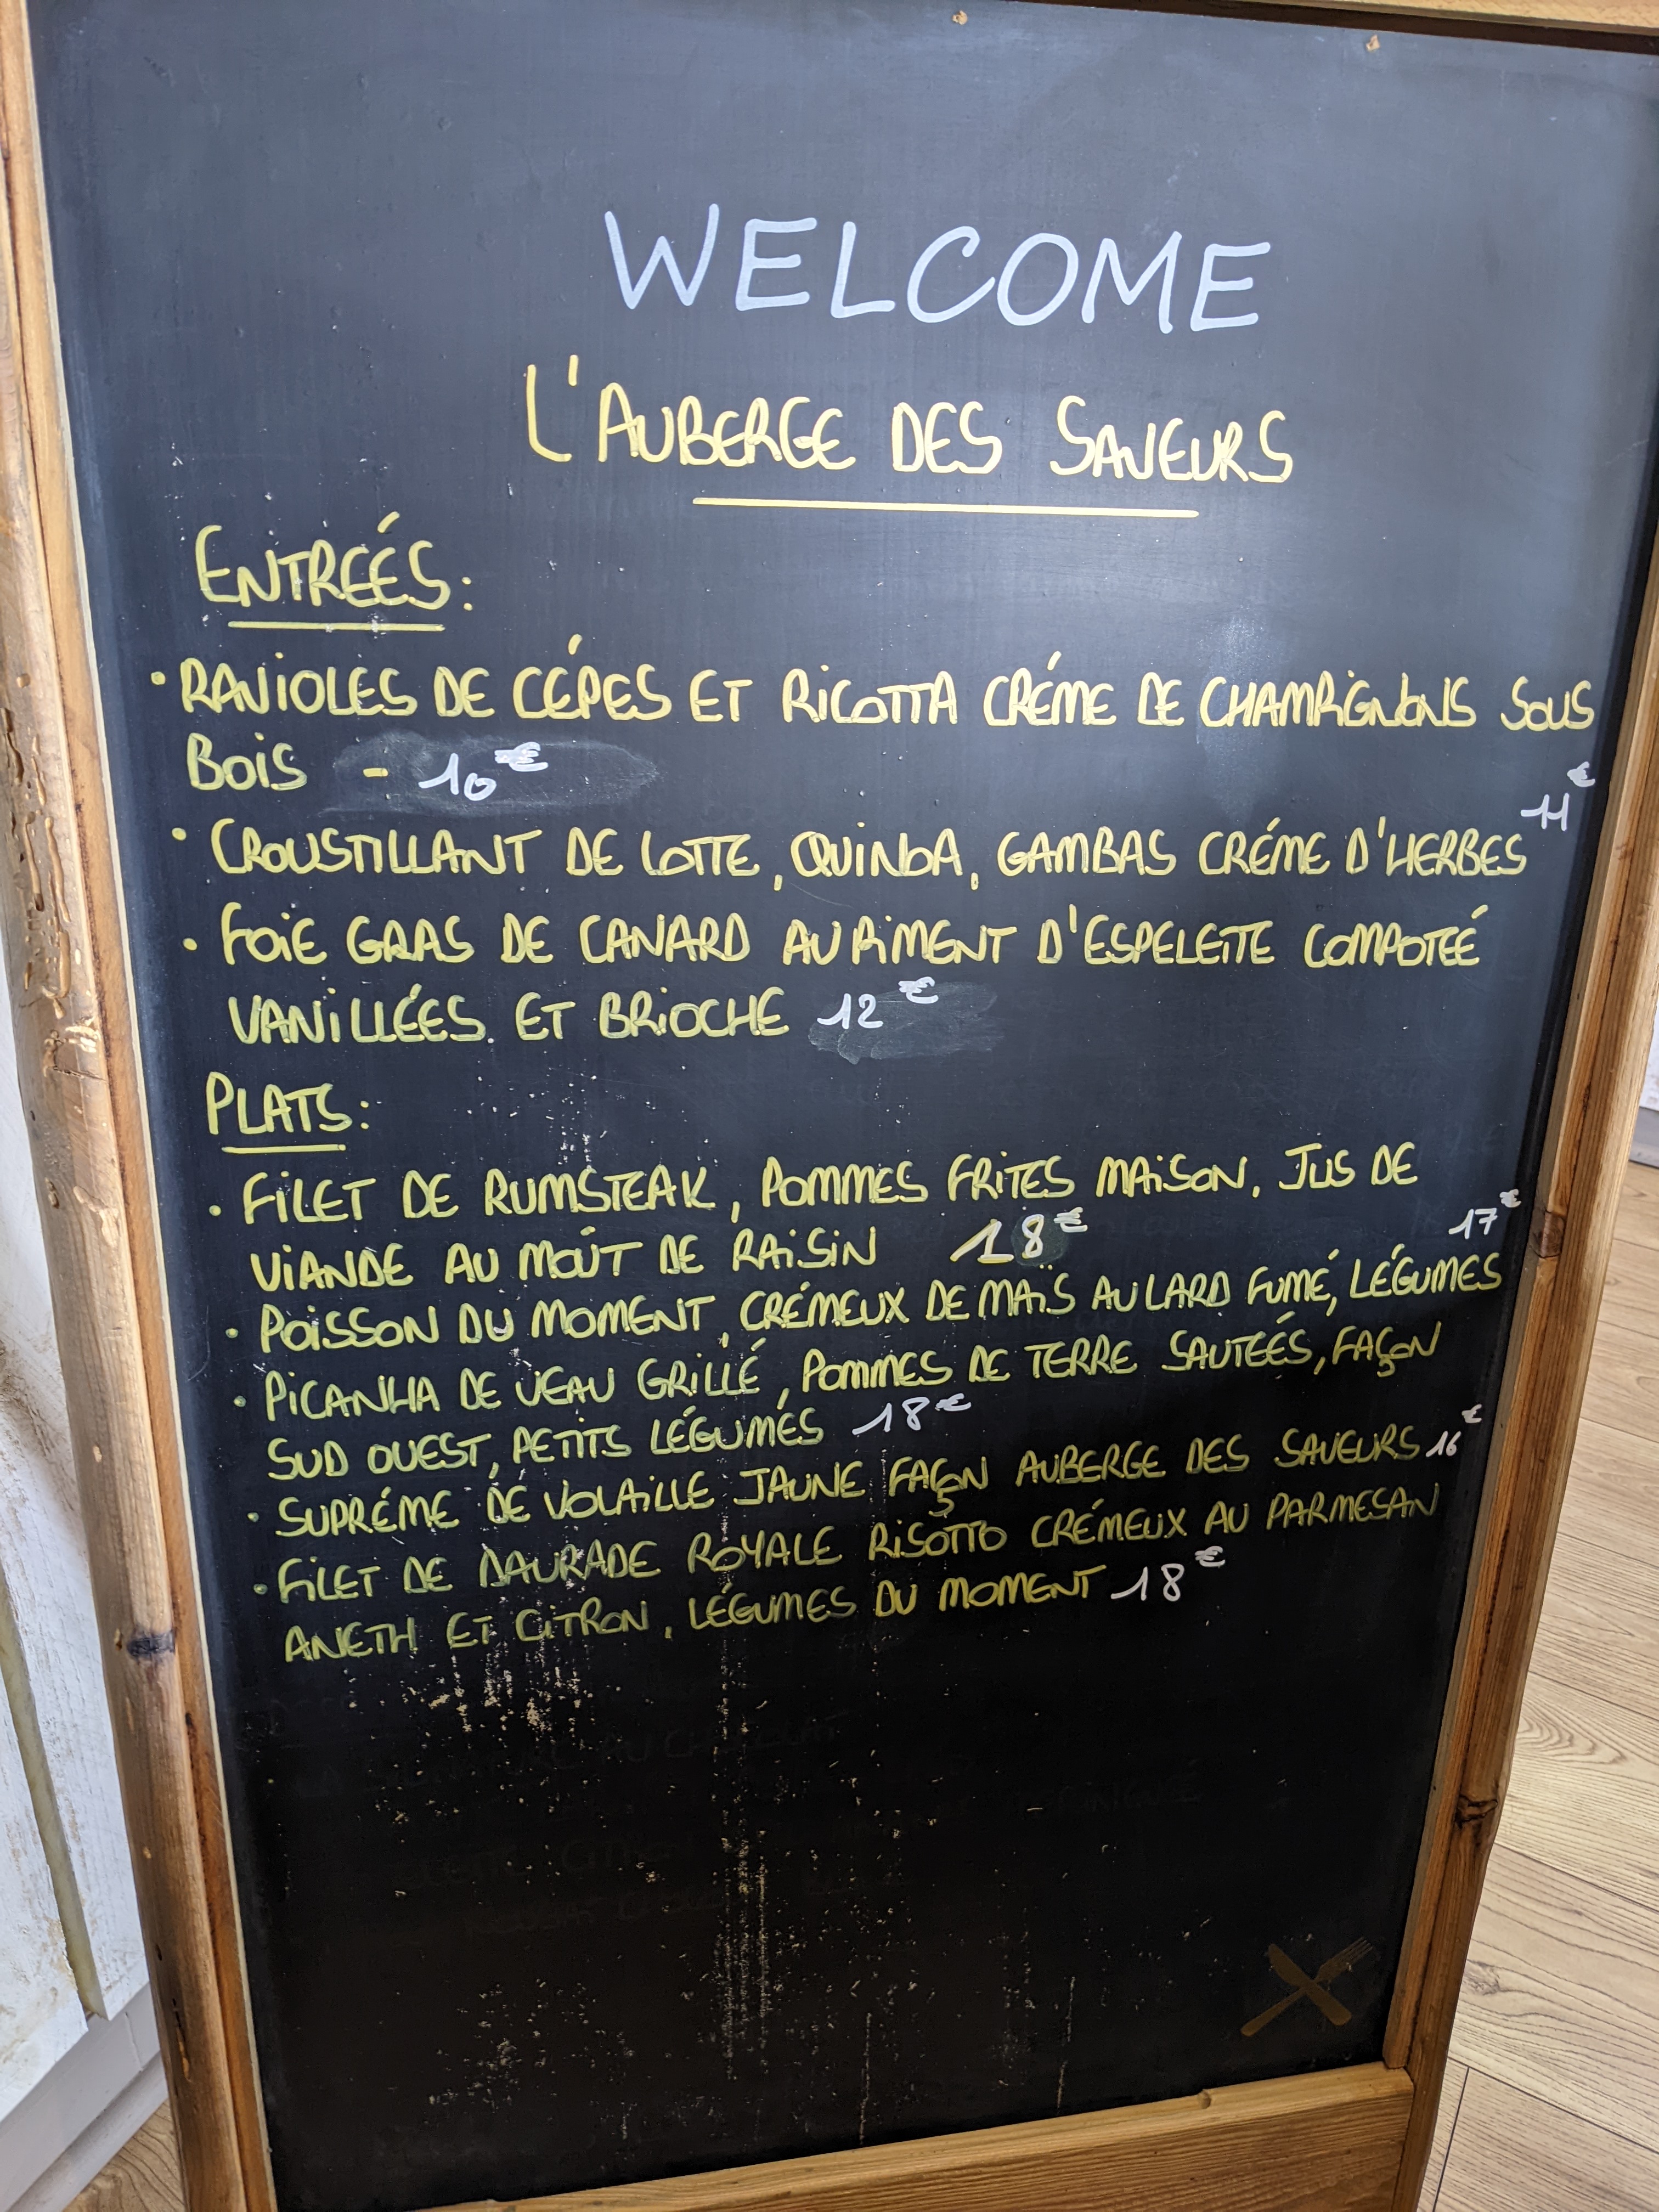 WELCOME
L'AUBERGE DES SAVEURS
ENTREÉS:
• RAVIOLES DE CÉPES ET RICOTTA CRÉME DE CHAMPIGNONS SOUS
BOIS - 10€
• CROUSTILLANT DE LOTTE, QUINOA, GAMBAS CRÉME D'HERBES 11€
• FOIE GRAS DE CANARD AU PIMENT D'ESPELETTE COMPOTEÉ
VANILLÉES ET BRIOCHE 12€
PLATS:
• FILET DE RUMSTEAK, POMMES FRITES MAISON, JUS DE
VIANDE AU MOÚT DE RAISIN 18€
• POISSON DU MOMENT, CRÉMEUX DE MAÏS AU LARD FUMÉ, LÉGUMES 17€
• PICANHA DE VEAU GRILLÉ, POMMES DE TERRE SAUTEÉS, FAÇON
SUD OUEST, PETITS LÉGUMES 18€
• SUPRÉME DE VOLAILLE JAUNE FAÇON AUBERGE DES SAVEURS 16€
• FILET DE DAURADE ROYALE RISOTTO CRÉMEUX AU PARMESAN
ANETH ET CITRON, LÉGUMES DU MOMENT 18€